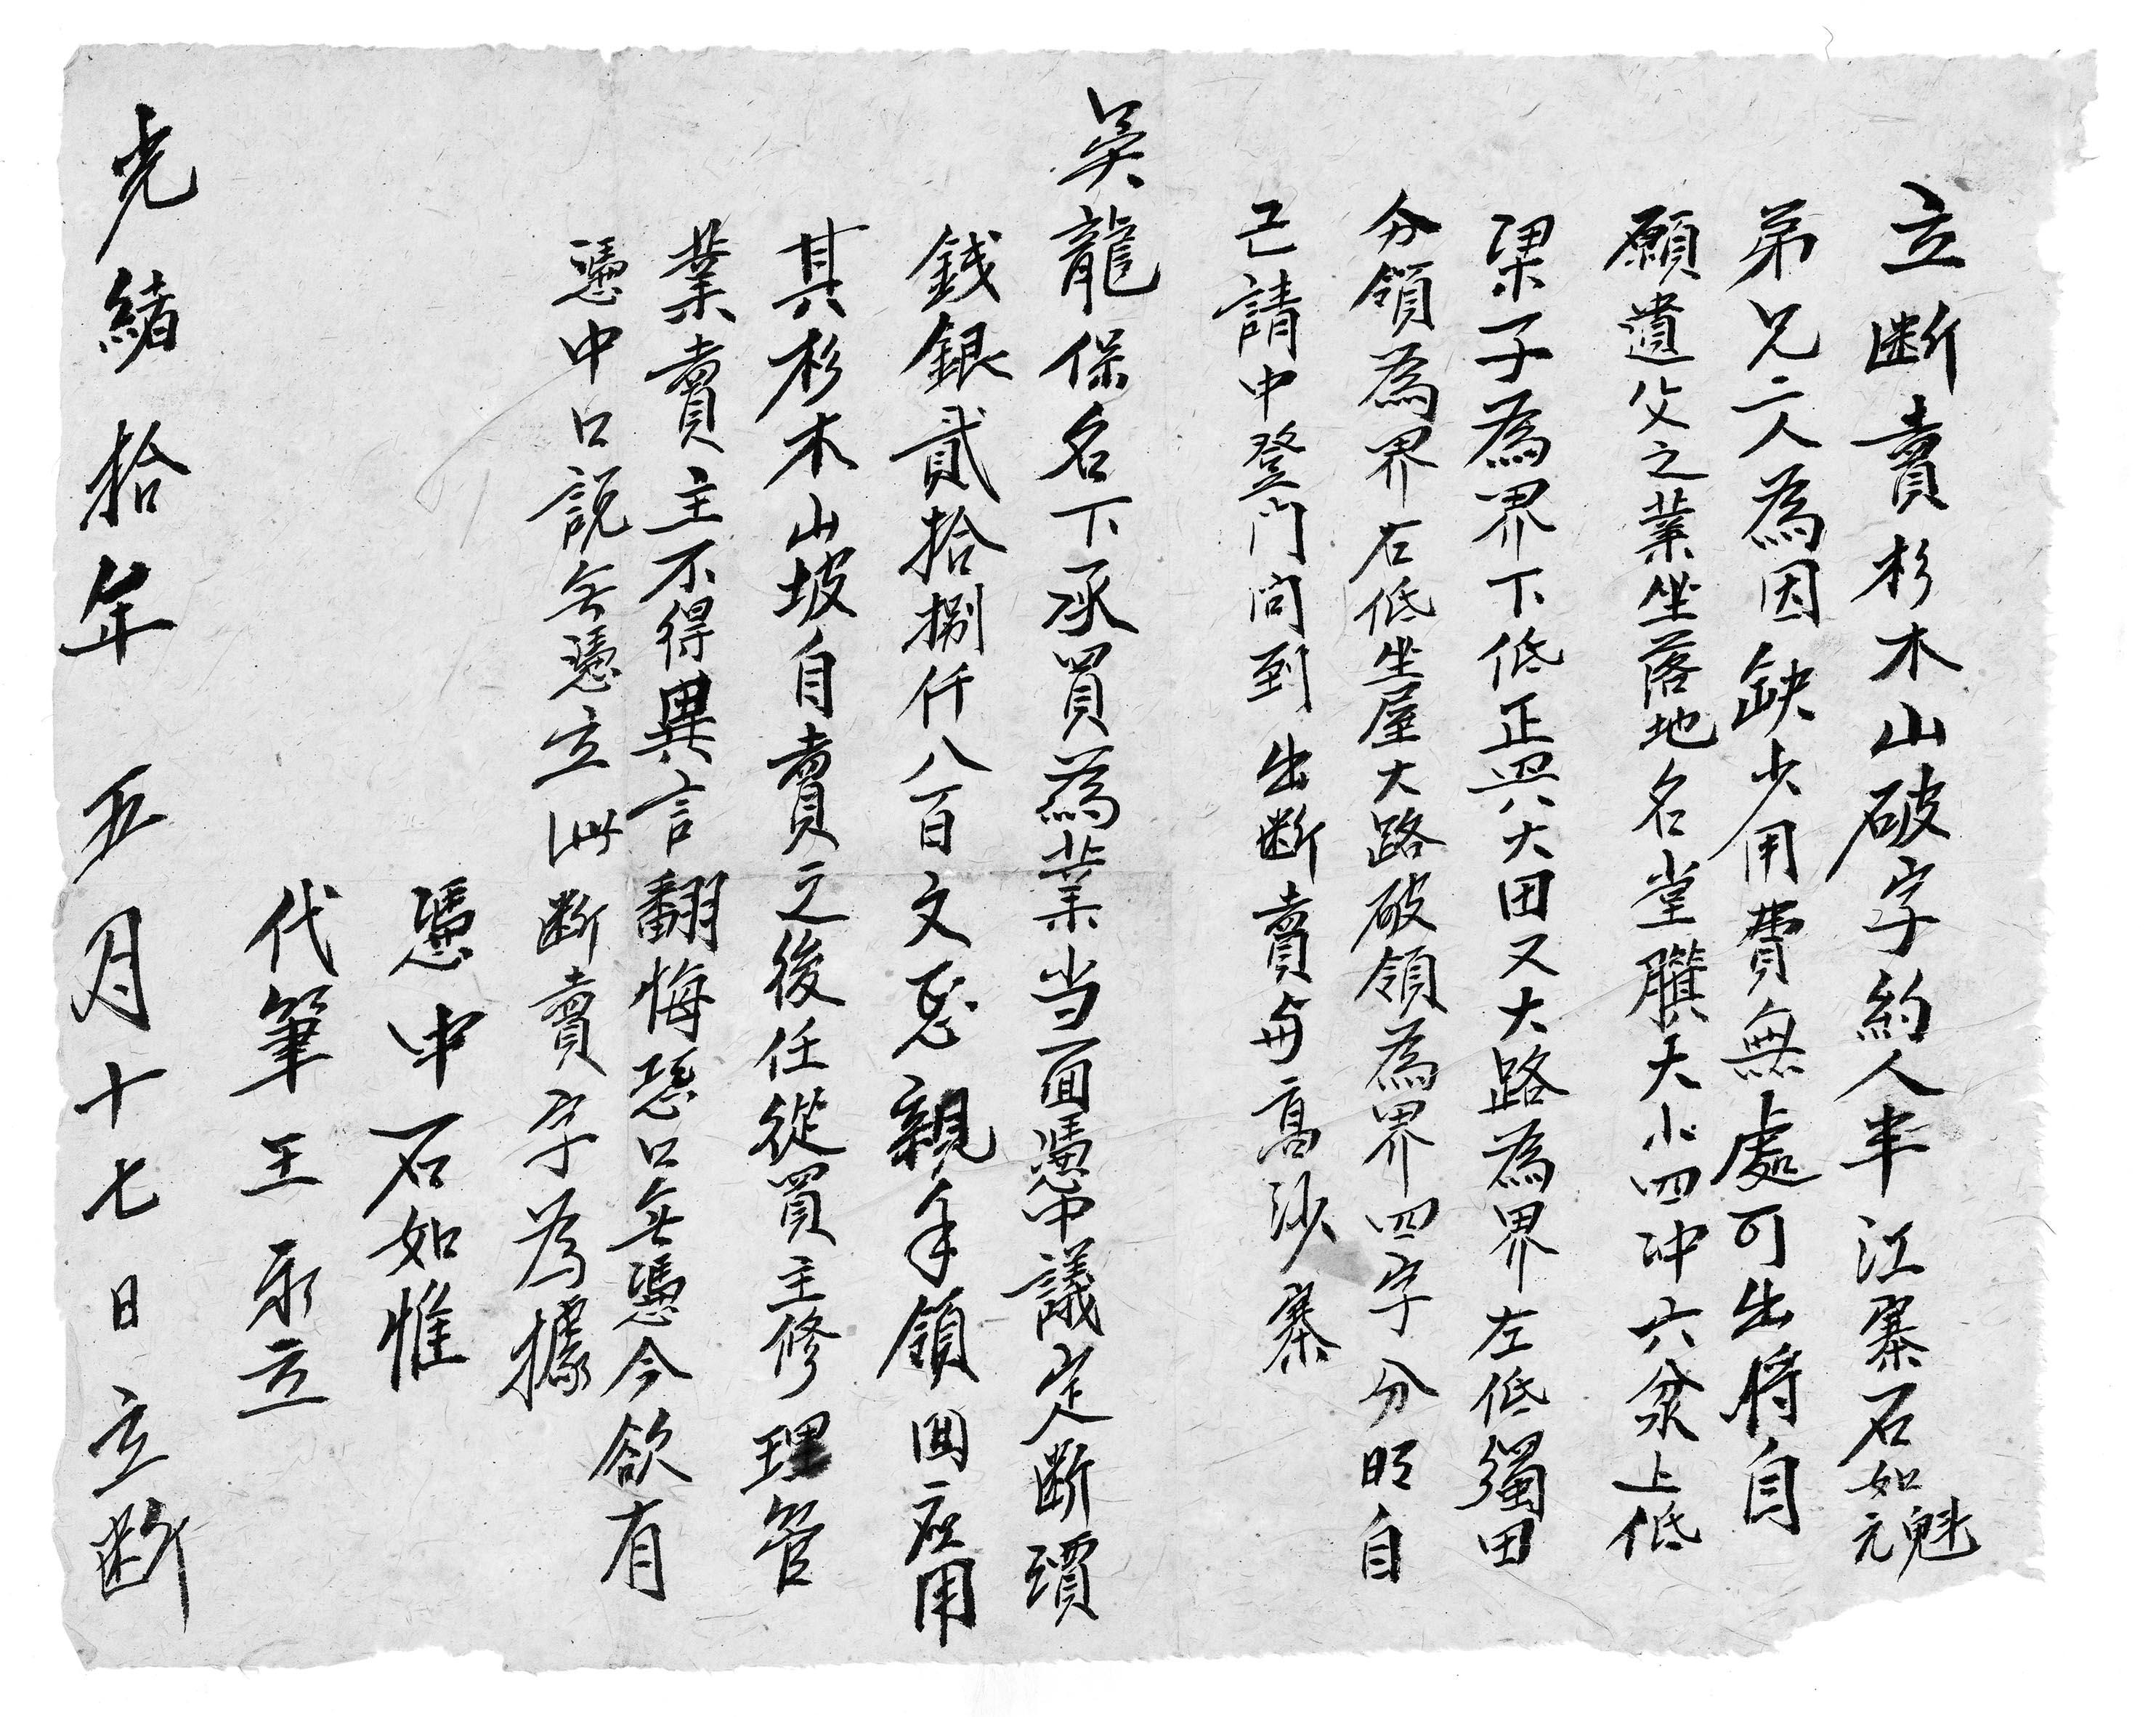 立断賣杉木山破字約人半江寨石如魁元
弟兄二人為因缺少用費無處可出将自
願遺父之業坐落地名堂朠大小四冲六岔上低
梁子為界下低正與大田又大路為界左低獨田
分領為界右低坐屋大路破領為界四字分明自
己請中登門問到出断賣與高沙寨
吳龍保名下承買為業当面憑中議定断價
錢銀貳拾捌仟八百文忌親手領囬應用
其杉木山坡自賣之後任從買主修理管
業賣主不得異言翻悔恐口無憑今欲有
憑中口説無憑立此断賣字為據
憑中石如惟
代筆王永立
光緒拾年五月十七日立断